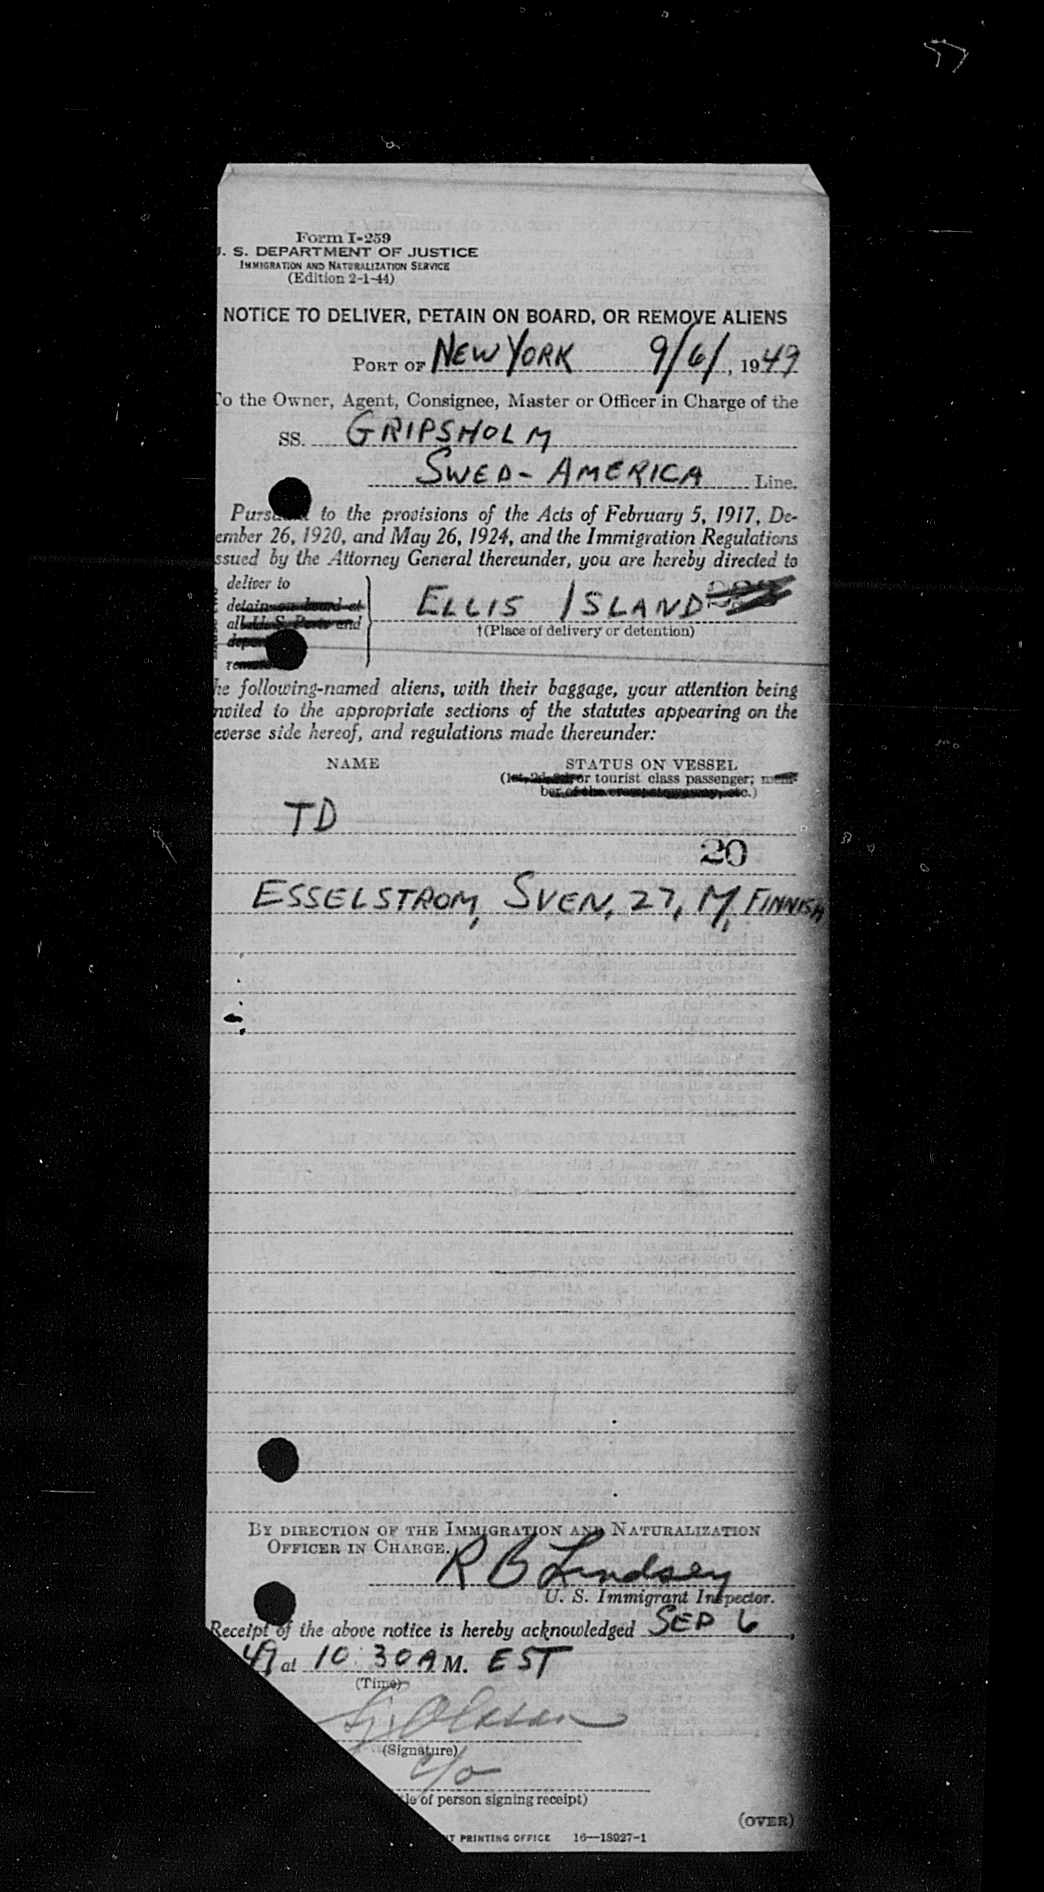 Form I-259
. S. DEPARTMENT OF JUSTICE
IMMIGRATION AND NATURALIZATION SERVICE
(Edition 2-1-44)
NOTICE TO DELIVER, DETAIN ON BOARD, OR REMOVE ALIENS
PORT OF NEW YORK 9/6/, 1949
o the Owner, Agent, Consignee, Master or Officer in Charge of the
SS. GRIPSHOLM
SWED-AMERICA Line.
Pursuant to the provisions of the Acts of February 5, 1917, De-
ember 26, 1920, and May 26, 1924, and the Immigration Regulations
ssued by the Attorney General thereunder, you are hereby directed to
deliver to
detain on board at
all U. S. Ports and
ELLIS ISLAND
†(Place of delivery or detention)
he following-named aliens, with their baggage, your attention being
nvited to the appropriate sections of the statutes appearing on the
everse side hereof, and regulations made thereunder:
NAME STATUS ON VESSEL
(1st, 2d, 3d, or tourist class passenger; mem-
ber of the crew, stowaway, etc.)
TD
20
ESSELSTROM, SVEN, 27, M, FINNISH
BY DIRECTION OF THE IMMIGRATION AND NATURALIZATION
OFFICER IN CHARGE.
R B Lindsey
U. S. Immigrant Inspector.
Receipt of the above notice is hereby acknowledged SEP 6,
49 at 10:30 A M. EST
(Time)
Olsson
(Signature)
c/o
le of person signing receipt)
(OVER)
T PRINTING OFFICE 16—18927-1